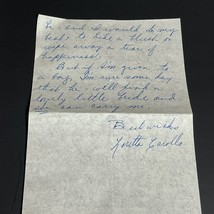 he and I would do my
best, to hide a blush or
wipe away a tear of
happiness!
But if I'm given to
a boy, I'm sure some day
that he'll find a
lovely little bride and
she can carry me.
Best wishes
Loretta Carollo